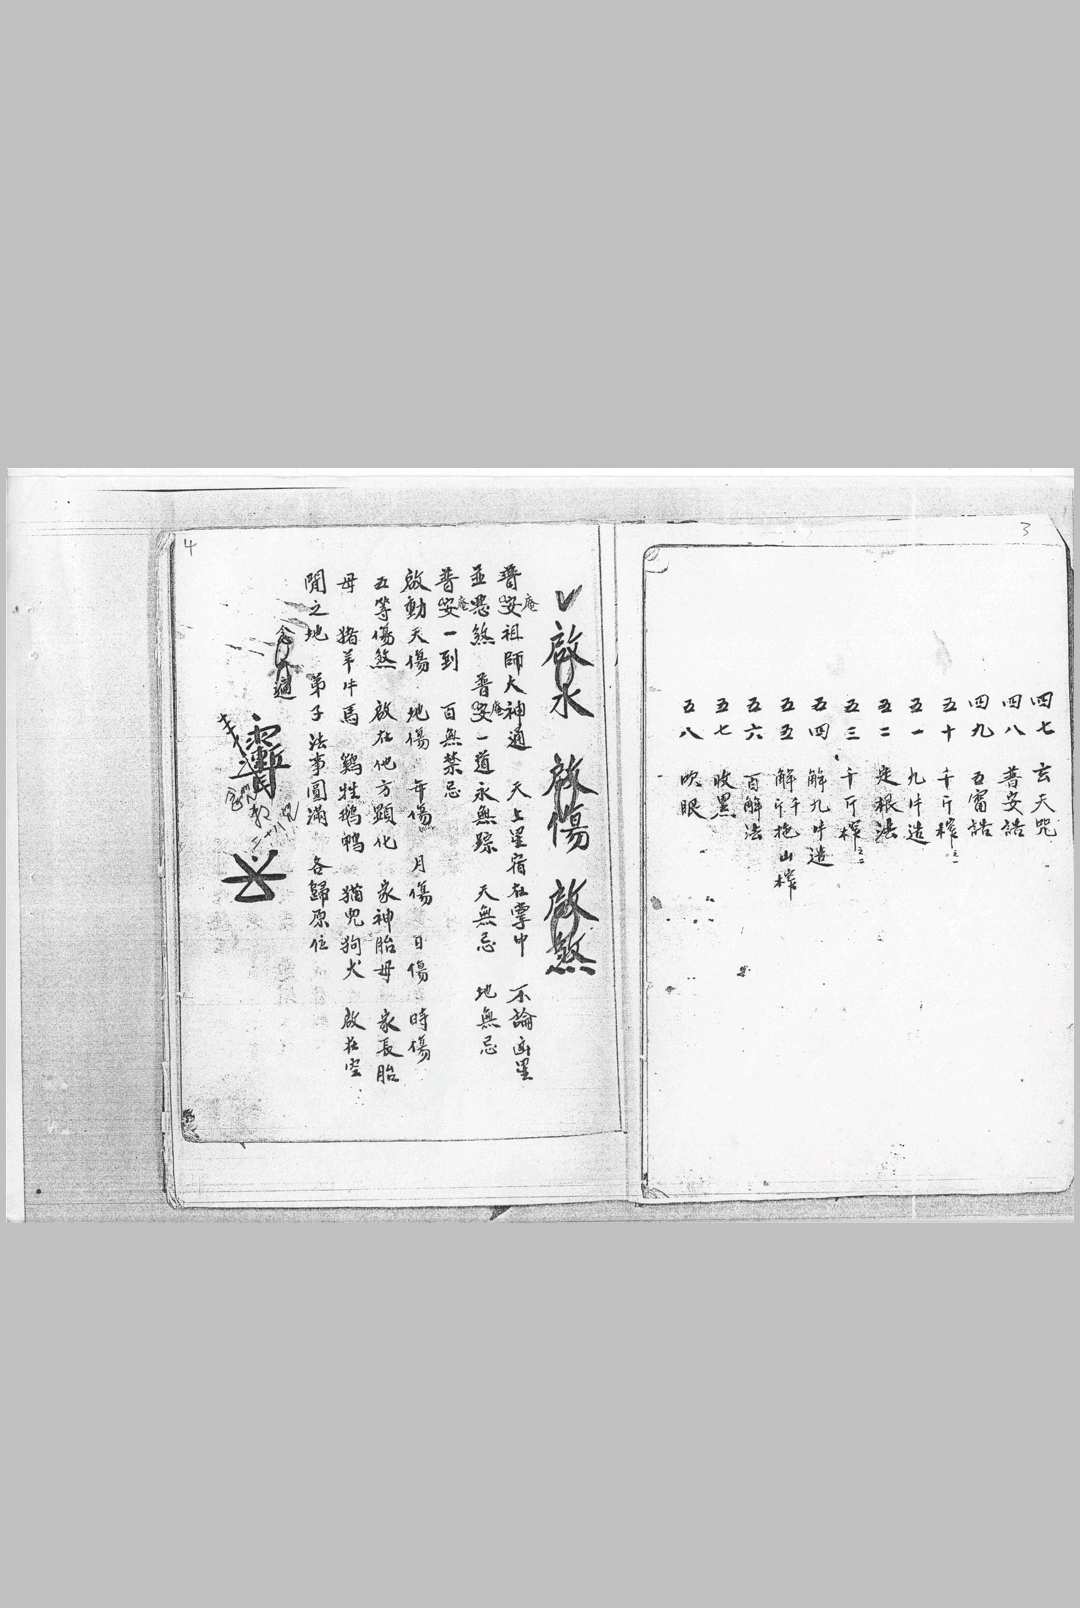 3
四七 玄天咒
四八 普安誥
四九 五雷誥
五十 千斤榨之一
五一 九牛造
五二 定根法
五三 千斤榨之二
五四 解九牛造
五五 解千斤拖山榨
五六 百解法
五七 收黑
五八 吹眼
4
啟水 啟傷 啟煞
普安庵祖師大神通 天上星宿在掌中 不論凶星
並惡煞 普安庵一道永無踪 天無忌 地無忌
普安庵一到 百無禁忌
啟動天傷 地傷 年傷 月傷 日傷 時傷
五等傷煞 啟在他方顕化 家神胎母 家長胎
母 猪羊牛馬 鷄牲鵝鴨 猫兒狗犬 啟在空
閒之地 弟子法事圓滿 各歸原位